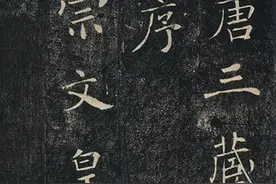 唐三藏
序
宗文皇